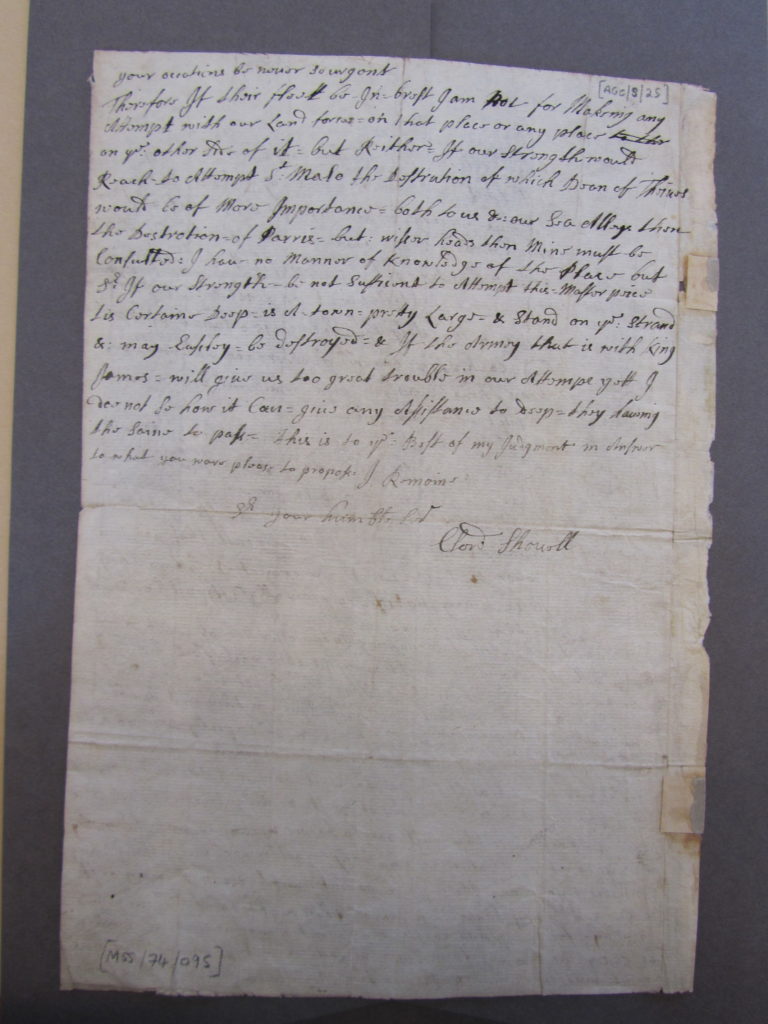 your ocations be never so urgent
[AGC/S/25]
Therefore If their fleet be In brest I am not for Making any
Attempt with our Land forces = on that place or any place to the
on ye: other side of it = but Reither = If our Strength would
Reach to Attempt St: Malo the Destration of which Dean of Theives
would be of More Importance = both to us &: our Sea Alleys then
the Destrotion = of Parris = but: wiser heads then Mine must be
Consulted: I have no Manner of Knowledge of the Place but
Sr: If our Strength = be not Suffient to Attempt this = Master piece
tis Certaine Deep = is A town = pretty Large = & Stand on ye: Strand
&: may Easiley = be destroyed = & If the Armey that is with King
James = will give us too great trouble in our Attempt yett I
doe not Se how it Can = give any Assistance to deep = they having
the Saine to pass = This is to ye: Best of my Judgment in Answer
to what you ware please to propose I Remaine
Sr your humble Sert
Clowd Shovell
[MSS/74/095]